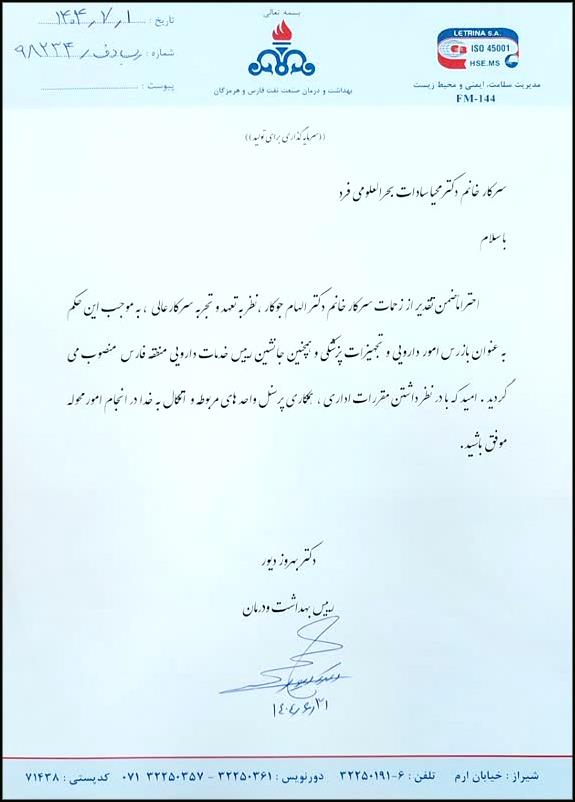 بسمه تعالی
تاریخ : ۱۴۰۴٫۷٫۱
شماره : ۹۸۲۳۴
پیوست :
بهداشت و درمان صنعت نفت فارس و هرمزگان
LETRINA S.A.
ISO 45001
HSE.MS
مدیریت سلامت، ایمنی و محیط زیست
FM-144
((سرمایه گذاری برای تولید))
سرکار خانم دکتر محیاسادات بحرالعلومی فرد
با سلام
احتراماً ضمن تقدیر از زحمات سرکار خانم دکتر الهام جوکار ، نظر به تعهد و تجربه سرکار عالی ، به موجب این حکم
به عنوان بازرس امور دارویی و تجهیزات پزشکی و همچنین جانشین رییس خدمات دارویی منطقه فارس منصوب می
گردید . امید که با در نظر داشتن مقررات اداری ، همکاری پرسنل واحد های مربوطه و اتکال به خدا در انجام امور محوله
موفق باشید .
دکتر بهروز دیور
رییس بهداشت ودرمان
۱۴۰۴٫۶٫۳۱
شیراز : خیابان ارم تلفن : ۶-۳۲۲۵۰۱۹۱ دورنویس : ۳۲۲۵۰۳۶۱ - ۳۲۲۵۰۳۵۷ ۰۷۱ کدپستی : ۷۱۴۳۸